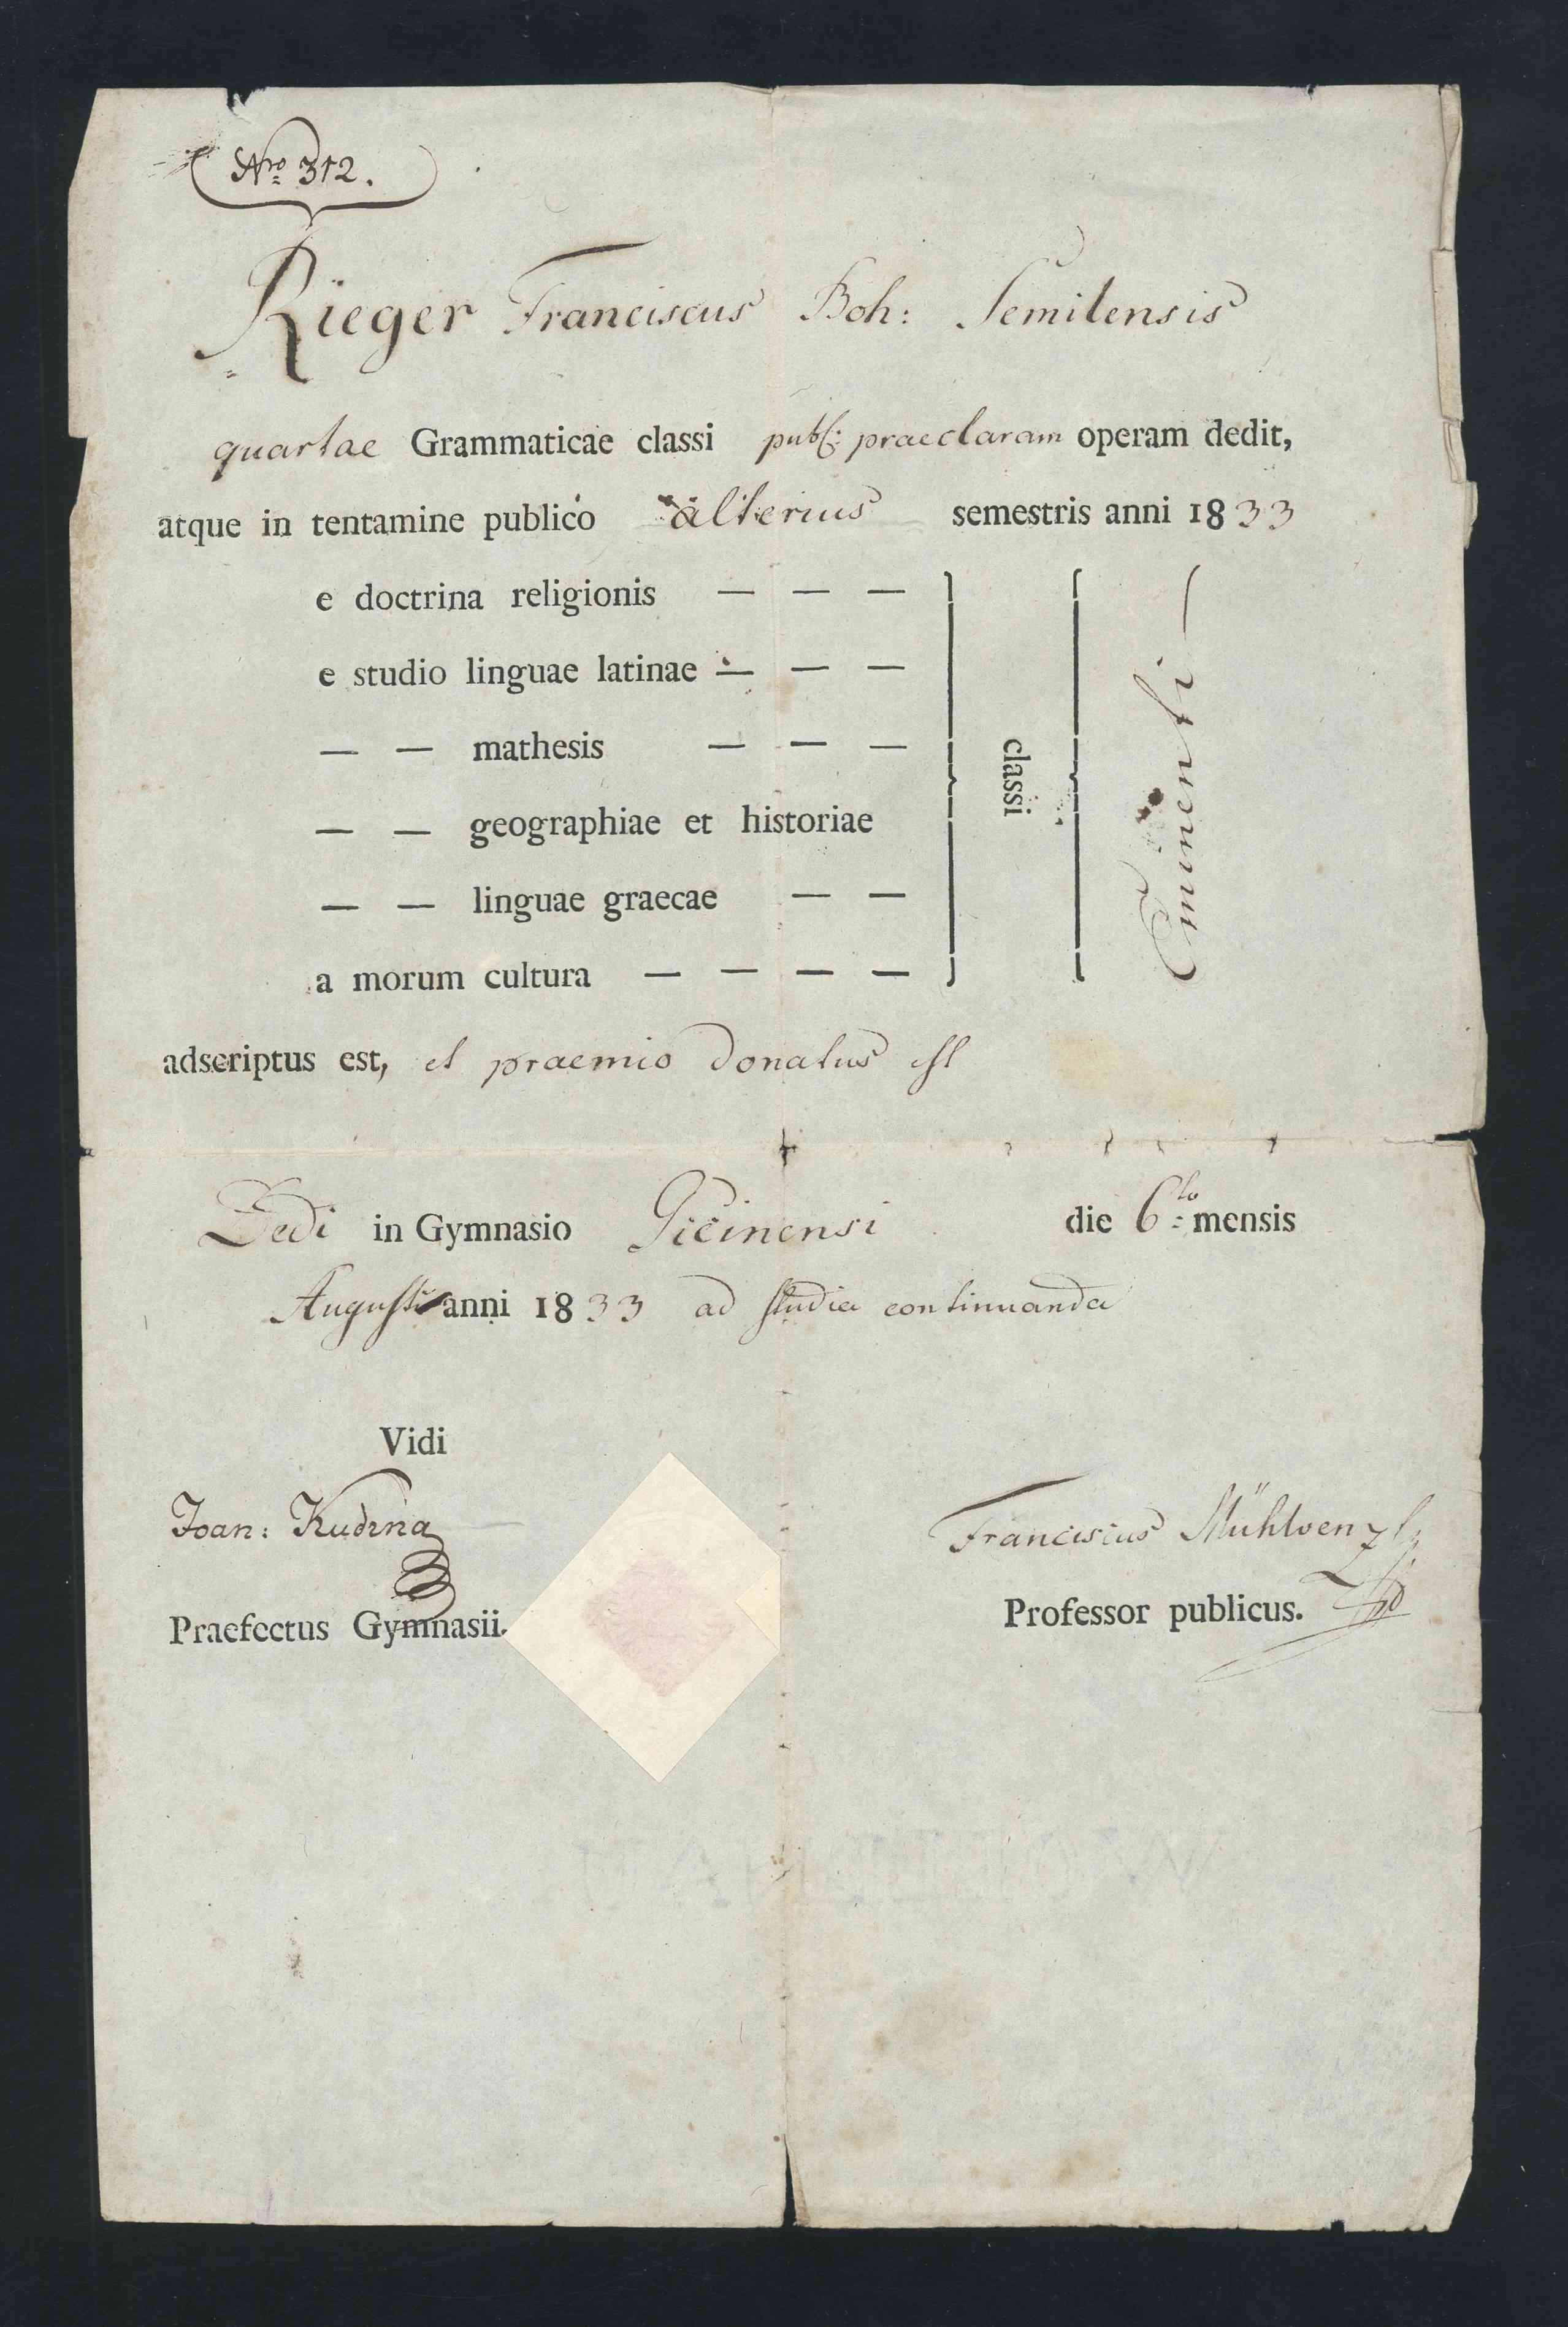 Nro 312.
Rieger Franciscus Boh: Semilensis
quartae Grammaticae classi publ: praeclaram operam dedit,
atque in tentamine publico alterius semestris anni 1833
e doctrina religionis — — —
e studio linguae latinae — — —
— — mathesis — — —
— — geographiae et historiae
— — linguae graecae — —
a morum cultura — — — —
classi
Eminenti —
adscriptus est, et praemio donatus est
Dedi in Gymnasio Gicinensi die 6to mensis
Augusti anni 1833 ad studia continuanda
Vidi
Joan: Kudrna
Praefectus Gymnasii.
Franciscus Mühlwenzl
Professor publicus.